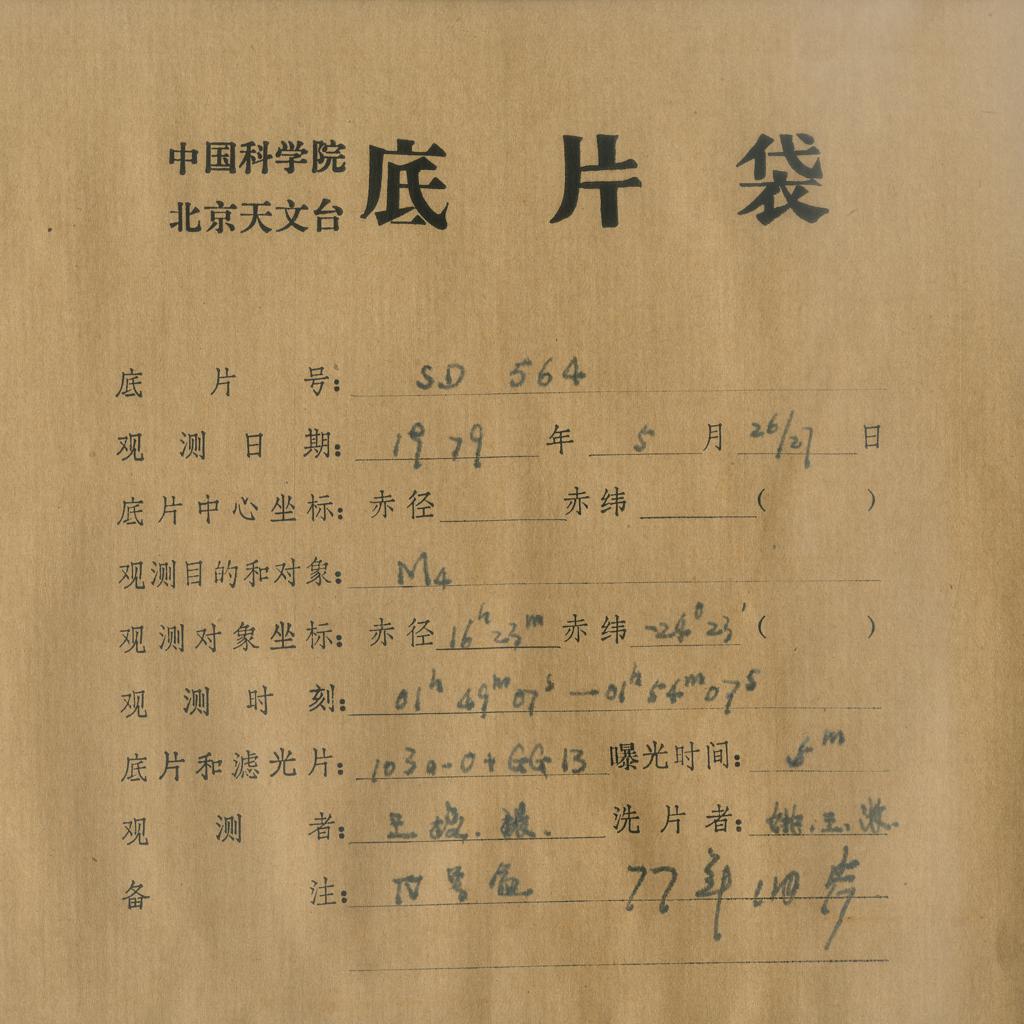 中国科学院
北京天文台
底片袋
底片号: SD 564
观测日期: 1979 年 5 月 26/27 日
底片中心坐标: 赤径 赤纬 ( )
观测目的和对象: M4
观测对象坐标: 赤径 16h23m 赤纬 -24°23′ ( )
观测时刻: 01h49m07s—01h54m07s
底片和滤光片: 103a-O+GG13 曝光时间: 5m
观测者: 王 洗片者: 姚.王.
备注: 77年